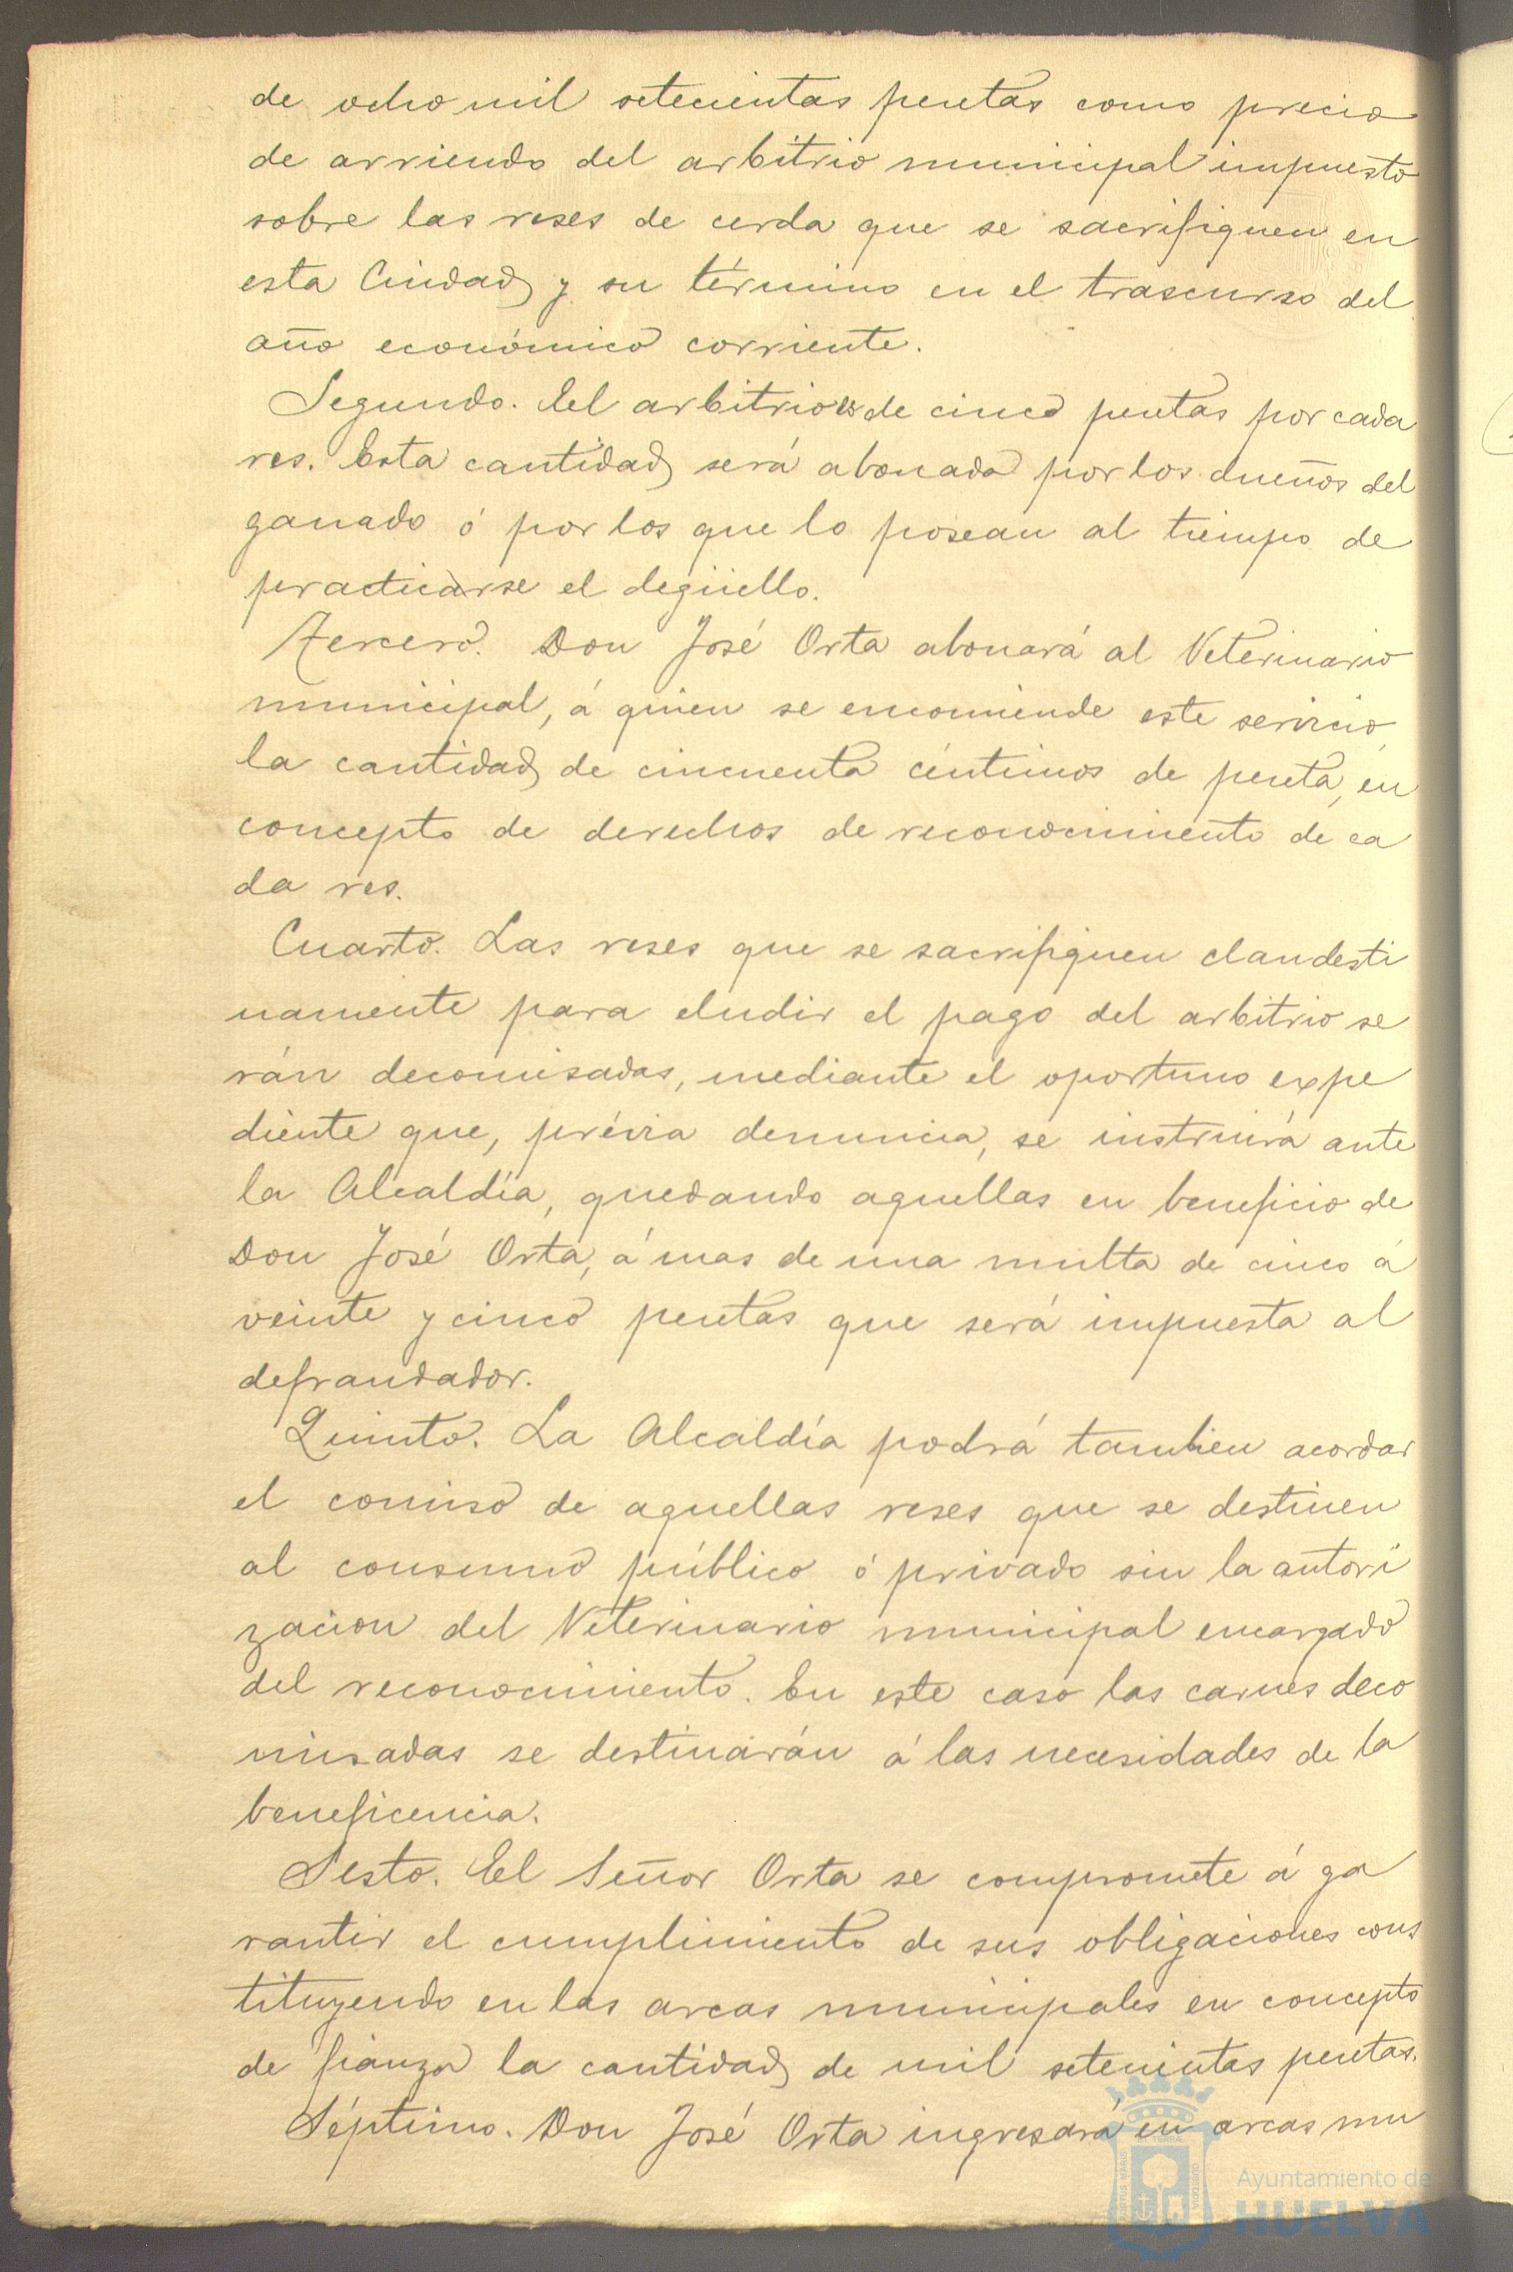 de ocho mil setecientas pesetas como precio
de arriendo del arbitrio municipal impuesto
sobre las reses de cerda que se sacrifiquen en
esta Ciudad y su término en el trascurso del
año económico corriente.
Segundo. El arbitrio es de cinco pesetas por cada
res. Esta cantidad será abonada por los dueños del
ganado ó por los que lo posean al tiempo de
practicarse el degüello.
Tercero. Don José Orta abonará al Veterinario
municipal, á quien se encomiende este servicio,
la cantidad de cincuenta céntimos de peseta, en
concepto de derechos de reconocimiento de ca
da res.
Cuarto. Las reses que se sacrifiquen clandesti
namente para eludir el pago del arbitrio se
rán decomisadas, mediante el oportuno expe
diente que, prévia denuncia, se instruirá ante
la Alcaldía, quedando aquellas en beneficio de
Don José Orta, á mas de una multa de cinco á
veinte y cinco pesetas que será impuesta al
defraudador.
Quinto. La Alcaldía podrá tambien acordar
el comiso de aquellas reses que se destinen
al consumo público ó privado sin la autori
zacion del Veterinario municipal encargado
del reconocimiento. En este caso las carnes deco
misadas se destinarán á las necesidades de la
beneficencia.
Sesto. El Señor Orta se compromete á ga
rantir el cumplimiento de sus obligaciones cons
tituyendo en las arcas municipales en concepto
de fianza la cantidad de mil setecientas pesetas.
Séptimo. Don José Orta ingresará en arcas mu
Ayuntamiento de
HUELVA